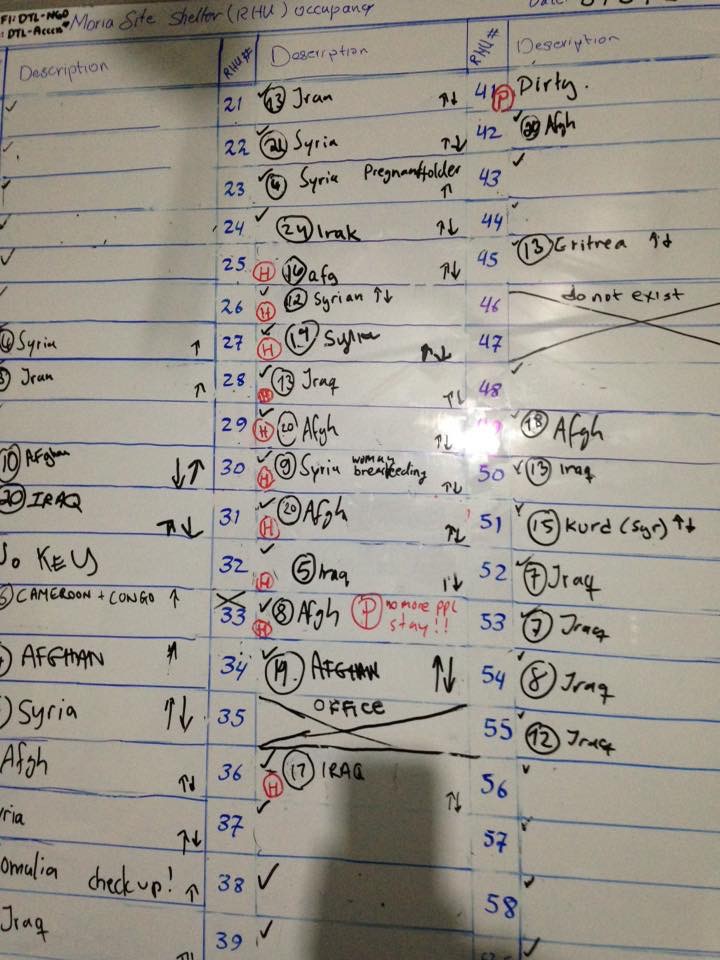 FI: DTL-NGO
: DTL-Accen
Moria Site Shelter (RHU) Occupancy
Date:
Description
✓
✓
✓
✓
✓
✓
④ Syria ↑
Iran ↑
⑩ Afghan ↓↑
⑳ IRAQ ↑↓
No KEY
CAMEROON + CONGO ↑
AFGHAN ↑
Syria ↑↓
Afgh ↑↓
ria ↑↓
omalia check up! ↑
Iraq ↑↓
RHU# Description
21 ✓ ⑬ Iran ↑↓
22 ✓ ㉑ Syria ↑↓
23 ✓ ④ Syria Pregnant+older ↑
24 ✓ ㉔ Irak ↑↓
25 Ⓗ ⑯ afg ↑↓
26 ✓ Ⓗ ⑫ Syrian ↑↓
27 ✓ Ⓗ ⑲ Syria ↑↓
28 ✓ Ⓗ ⑬ Iraq ↑↓
29 ✓ Ⓗ ⑳ Afgh ↑↓
30 ✓ Ⓗ ⑨ Syria woman breastfeeding ↑↓
31 ✓ Ⓗ ⑳ Afgh ↑↓
32 ✓ Ⓗ ⑤ Iraq ↑↓
33 ✓ Ⓗ ⑧ Afgh Ⓟ no more ppl
stay!!
34 ✓ ⑲ AFGHAN ↑↓
35 OFFICE
36 ✓ Ⓗ ⑰ IRAQ ↑↓
37 ✓
38 ✓
39 ✓
RHU# Description
41 Ⓟ ✓ Dirty.
42 ✓ Afgh
43 ✓
44 ✓
45 ✓ ⑬ Eritrea ↑↓
46 do not exist
47
48 ✓
✓ ⑱ Afgh
50 ✓ ⑬ Iraq
51 ✓ ⑮ Kurd (Syr) ↑↓
52 ✓ ⑦ Iraq
53 ✓ ⑦ Iraq
54 ✓ ⑧ Iraq
55 ✓ ⑫ Iraq
56 ✓
57 ✓
58 ✓
✓